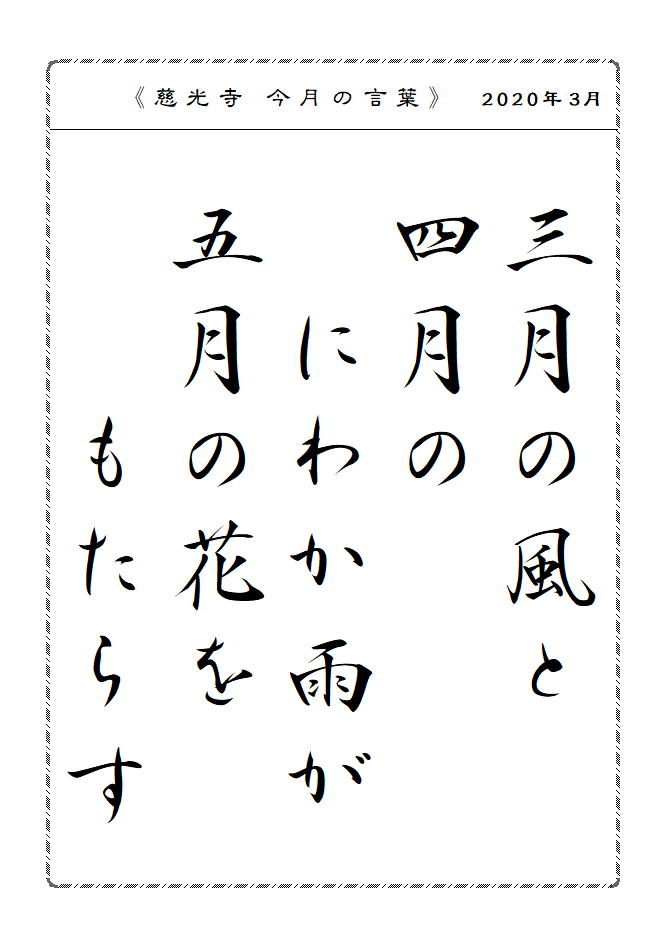 《慈光寺 今月の言葉》 2020年3月
三月の風と
四月の
にわか雨が
五月の花を
もたらす